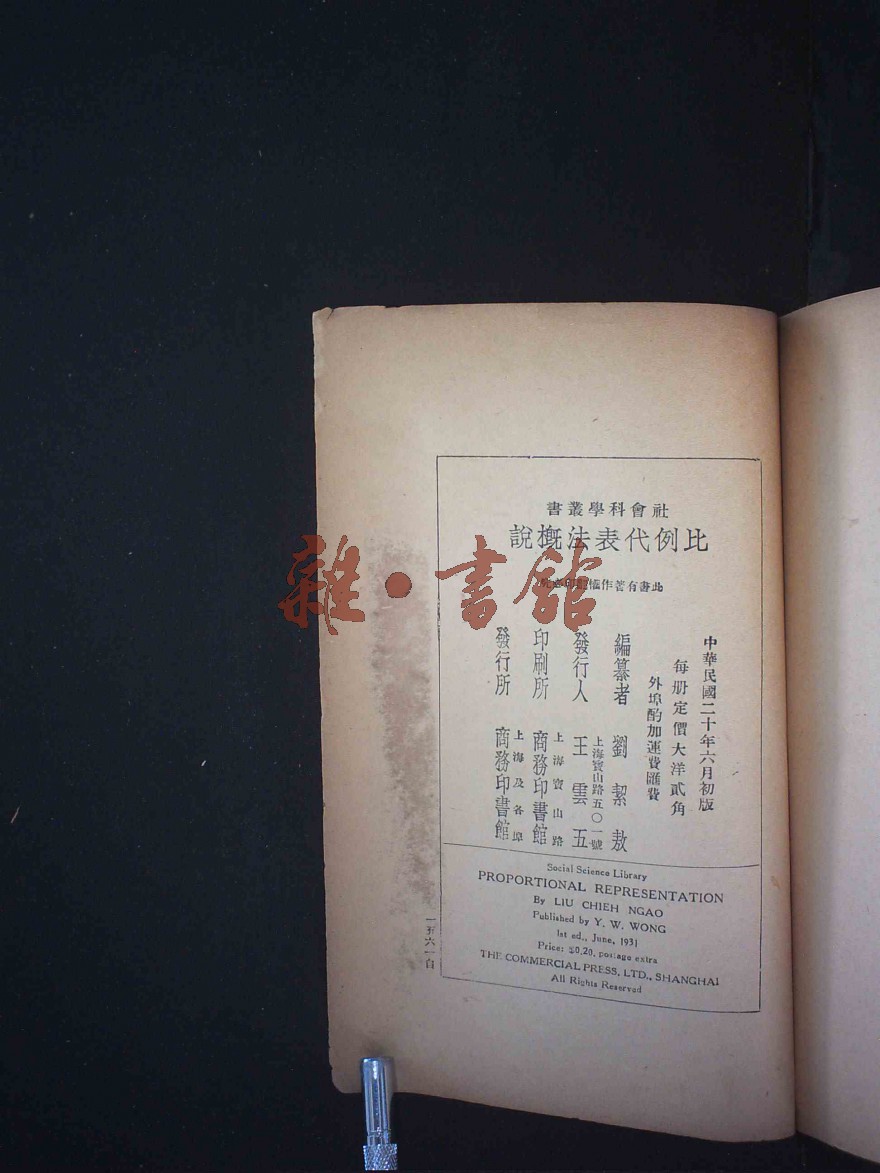 社會科學叢書
比例代表法概說
此書有著作權翻印必究
中華民國二十年六月初版
每册定價大洋貳角
外埠酌加運費匯費
編纂者 劉絜敖
發行人 上海寶山路五〇一號 王雲五
印刷所 上海寶山路 商務印書館
發行所 上海及各埠 商務印書館
Social Science Library
PROPORTIONAL REPRESENTATION
By LIU CHIEH NGAO
Published by Y. W. WONG
1st ed., June, 1931
Price: $0.20, postage extra
THE COMMERCIAL PRESS, LTD., SHANGHAI
All Rights Reserved
雜·書館